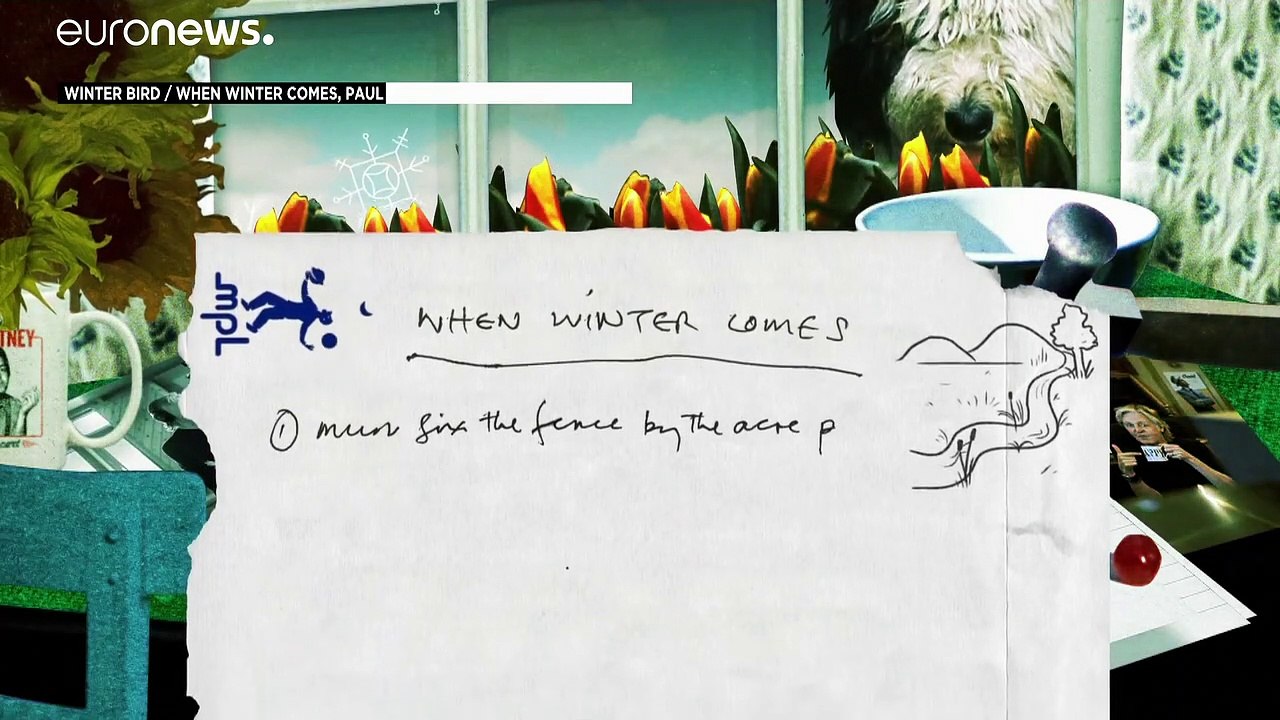 euronews.
WINTER BIRD / WHEN WINTER COMES, PAUL
TNEY
MPL
WHEN WINTER COMES
① must fix the fence by the acre p